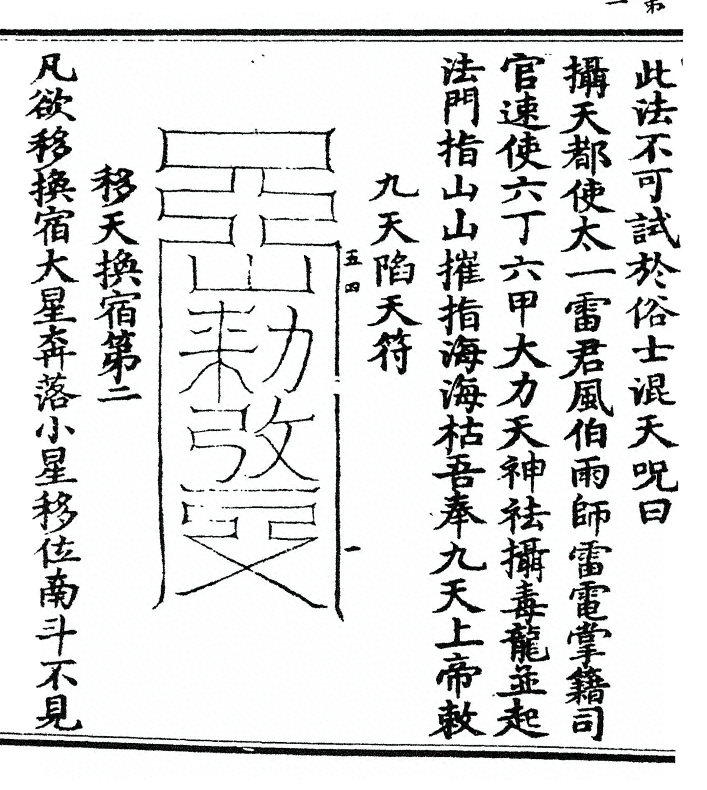 此法不可試於俗士混天呪曰
攝天都使太一雷君風伯雨師雷電掌籍司
官速使六丁六甲大力天神祛攝毒龍並起
法門指山山摧指海海枯吾奉九天上帝敕
九天陷天符
五四
一
移天換宿第二
凡欲移換宿大星奔落小星移位南斗不見